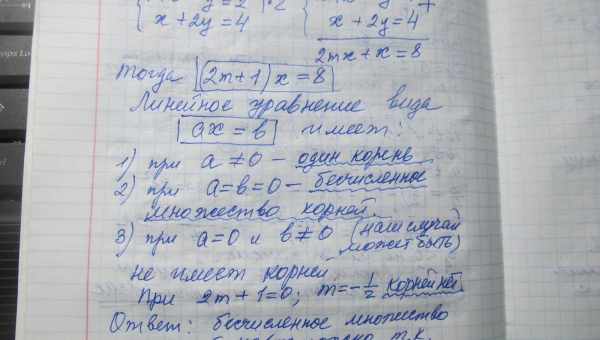 x + 2y = 4
x + 2y = 4
2mx + x = 8
тогда (2m+1)x = 8
Линейное уравнение вида
ax = b имеет:
1) при a ≠ 0 – один корень
2) при a = b = 0 – бесчисленное
множество корней.
3) при a = 0 и b ≠ 0 (наш случай
может быть)
не имеет корней
При 2m + 1 = 0; m = -1/2 корней нет.
Ответ: бесчисленное множество